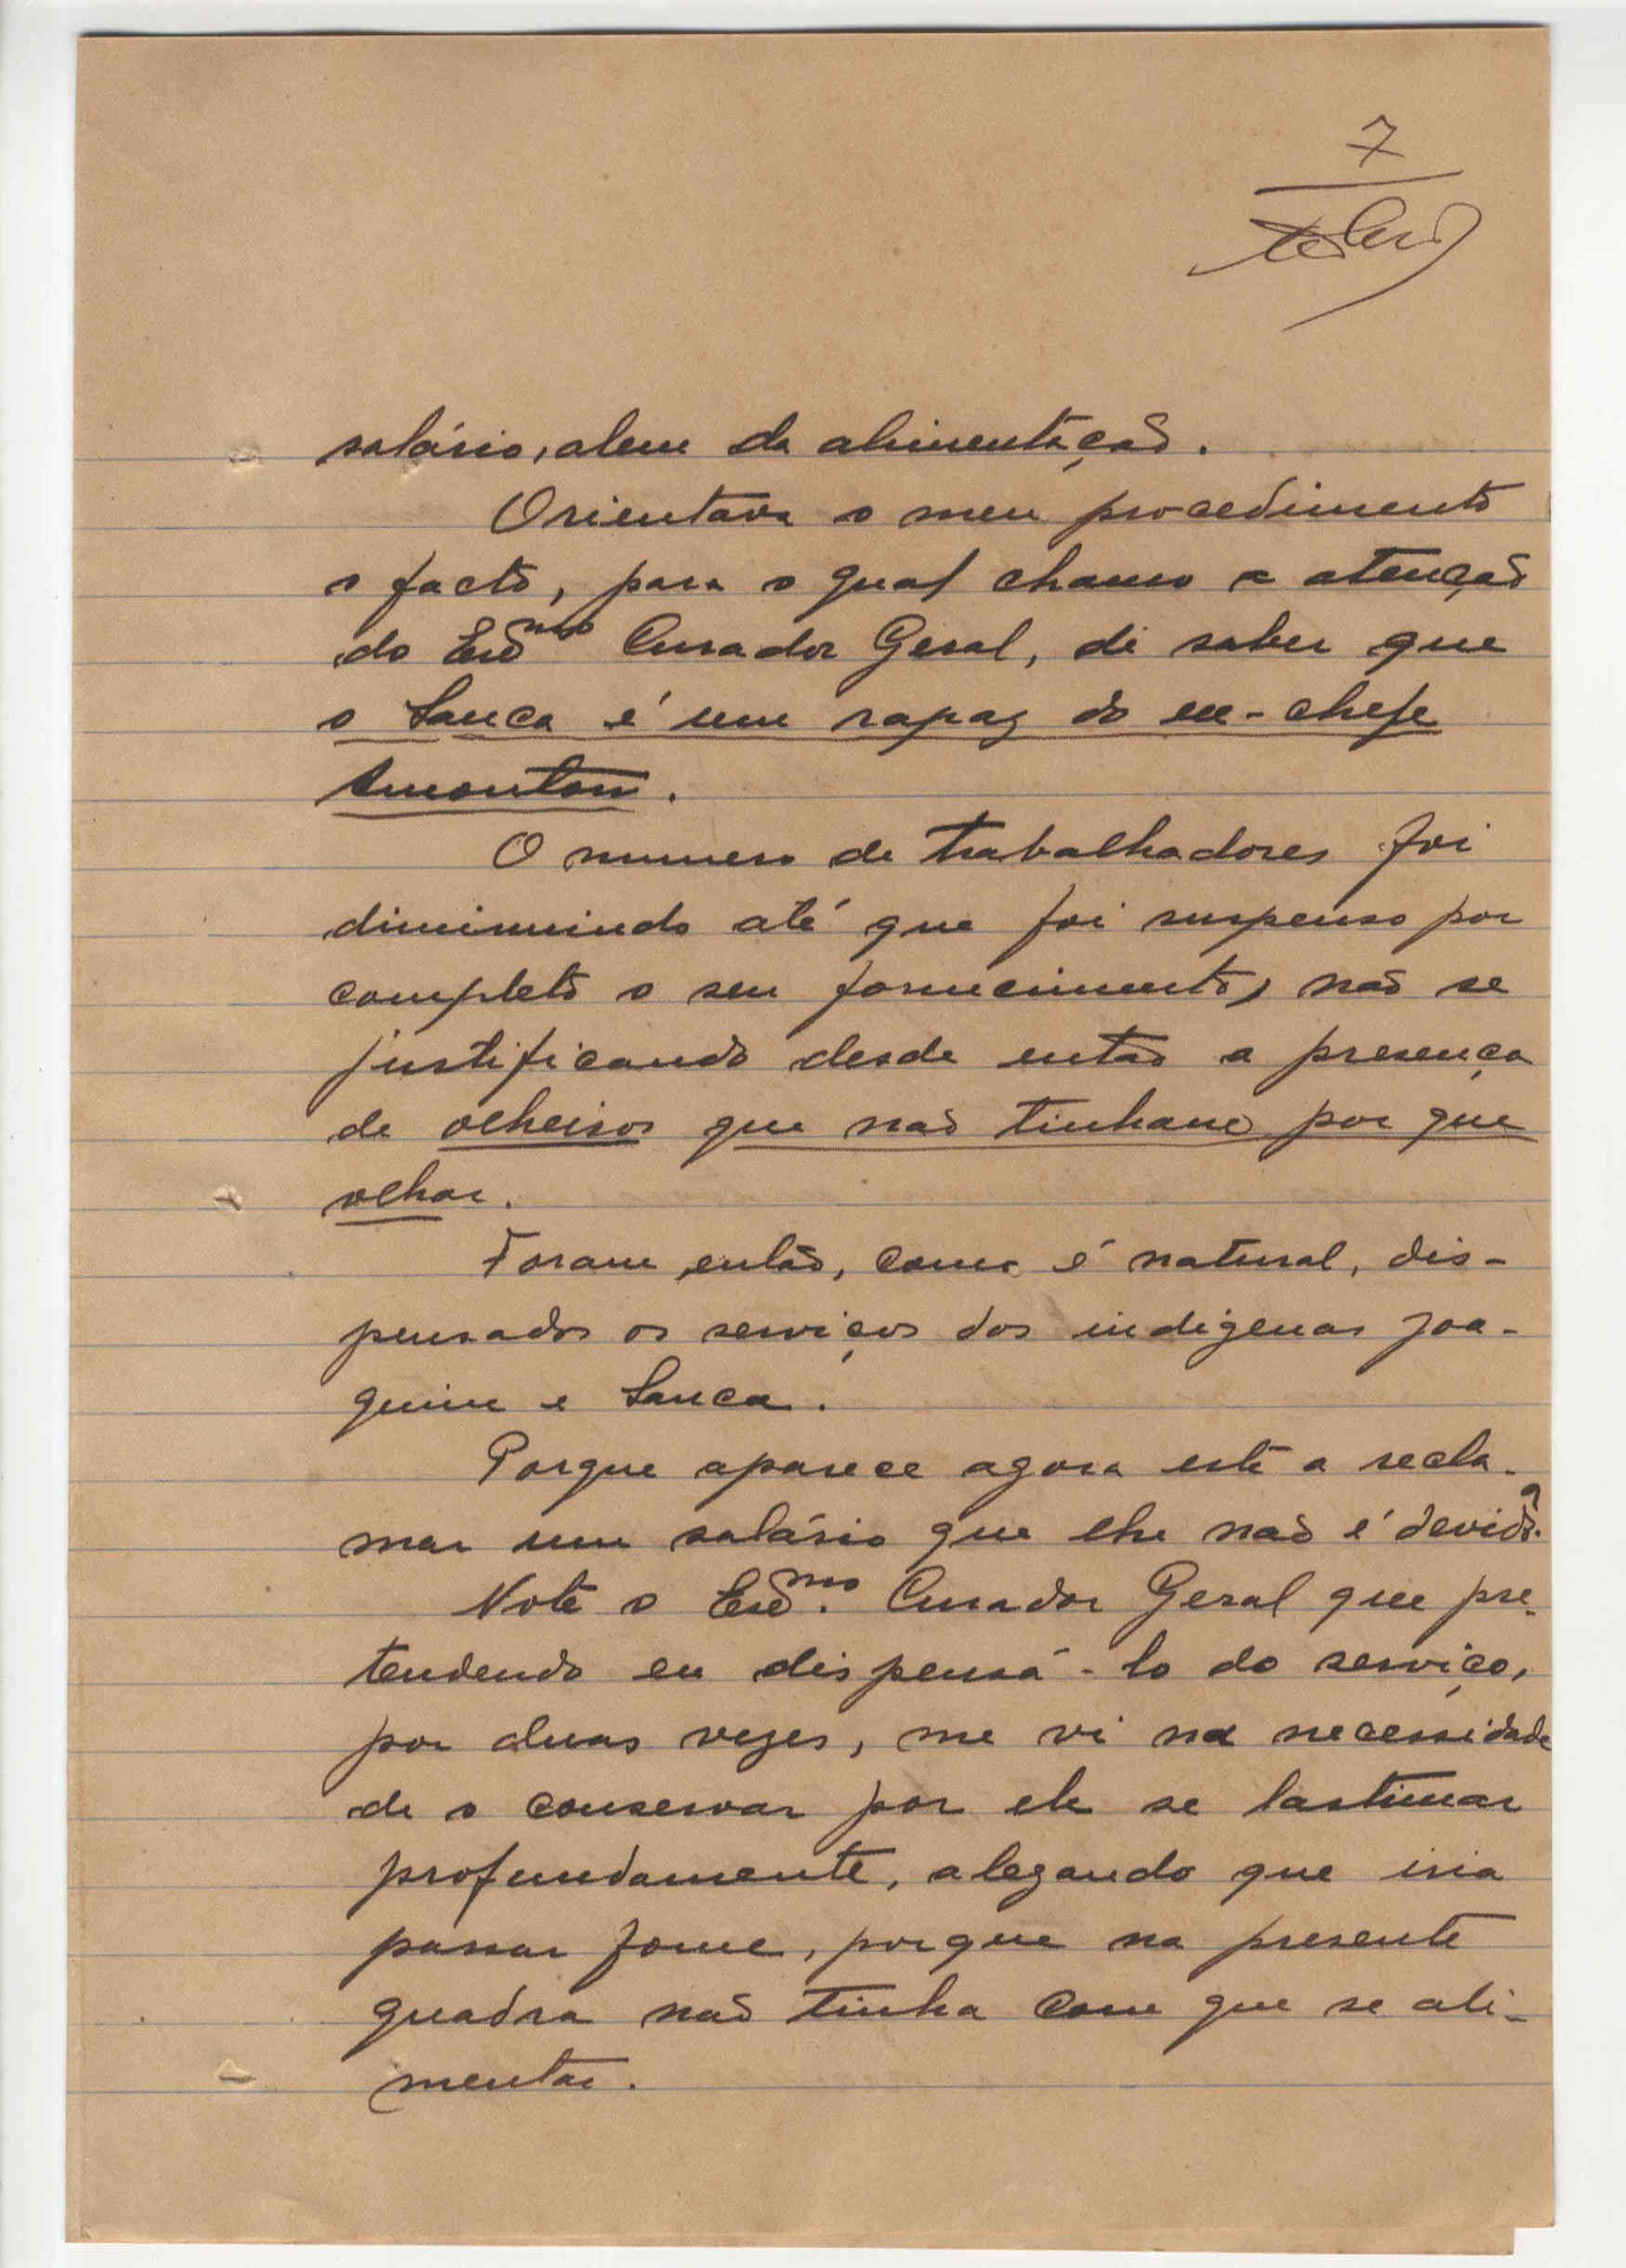 7
salário, alem da alimentação.
Orientava o meu procedimento
o facto, para o qual chamo a atenção
do Exᵐᵒ Curador Geral, de saber que
o Sanca é um rapaz do ex-chefe
O numero de trabalhadores foi
diminuindo até que foi suspenso por
completo o seu fornecimento, não se
justificando desde então a presença
de olheiros que não tinham por que
olhar.
Foram, então, como é natural, dis-
pensados os serviços dos indigenas Joa-
quim e Sanca.
Porque aparece agora este a recla-
mar um salário que lhe não é devido?
Note o Exᵐᵒ. Curador Geral que pre-
tendendo eu dispensá-lo do serviço,
por duas vezes, me vi na necessidade
de o conservar por ele se lastimar
profundamente, alegando que iria
passar fome, porque na presente
quadra não tinha com que se ali-
mentar.